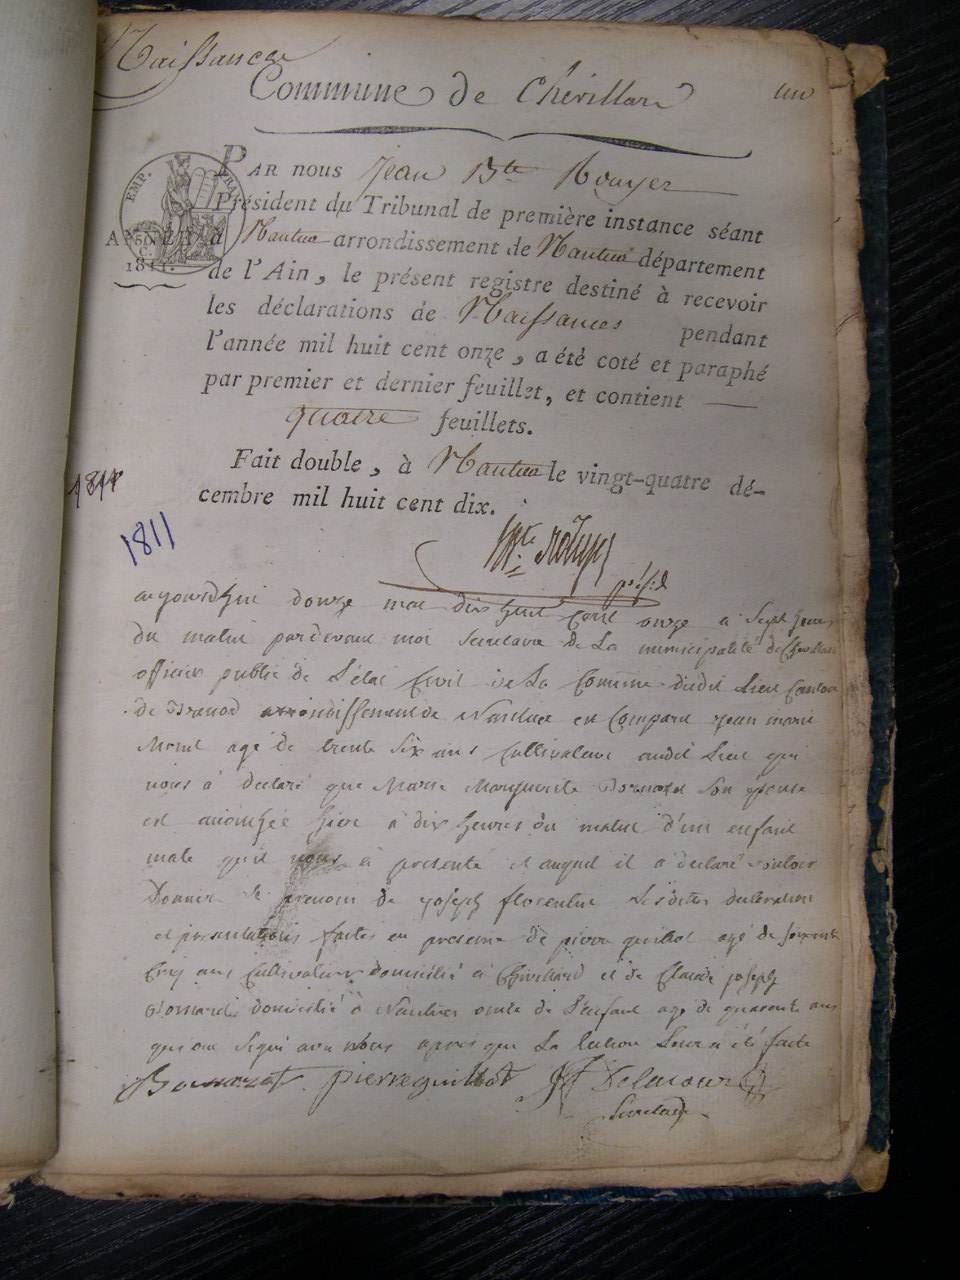 Naissances
Commune de Chevillard
un
PAR nous Jean Bte Rouyer
Président du Tribunal de première instance séant
à Nantua arrondissement de Nantua département
de l'Ain, le présent registre destiné à recevoir
les déclarations de Naissances pendant
l'année mil huit cent onze, a été coté et paraphé
par premier et dernier feuillet, et contient
quatre feuillets.
Fait double, à Nantua le vingt-quatre dé-
cembre mil huit cent dix.
EMP. FRAN.
50 C.
AIN
1811.
1811
présid
aujourdhui donze mai dix huit Cent onze a Sept heures
du matin pardevant moi Secretaire de La municipalité de Chevillard
officier public de L'état Civil de La Commune dudit Lieu Canton
de Brenod arrondissement de Nantua est Comparu jean marie
agé de trente Six ans Cultivateur audit Lieu qui
nous a declaré que Marie Marguerite Son épouse
est accouchée hier a dix heures du matin d'un enfant
male quil nous a presenté et auquel il a declaré vouloir
Donner le prenom de joseph florentin Lesdites declaration
et presentations faites en presence de pierre guillot agé de soixante
Cinq ans Cultivateur domicilié a Chevillard et de Claude joseph
domicilié a Nantua oncle de L'enfant age de quarante ans
qui ont Signé avec Nous apres que La lecture Leur a été faite
pierre guillot Delacour
Secretaire